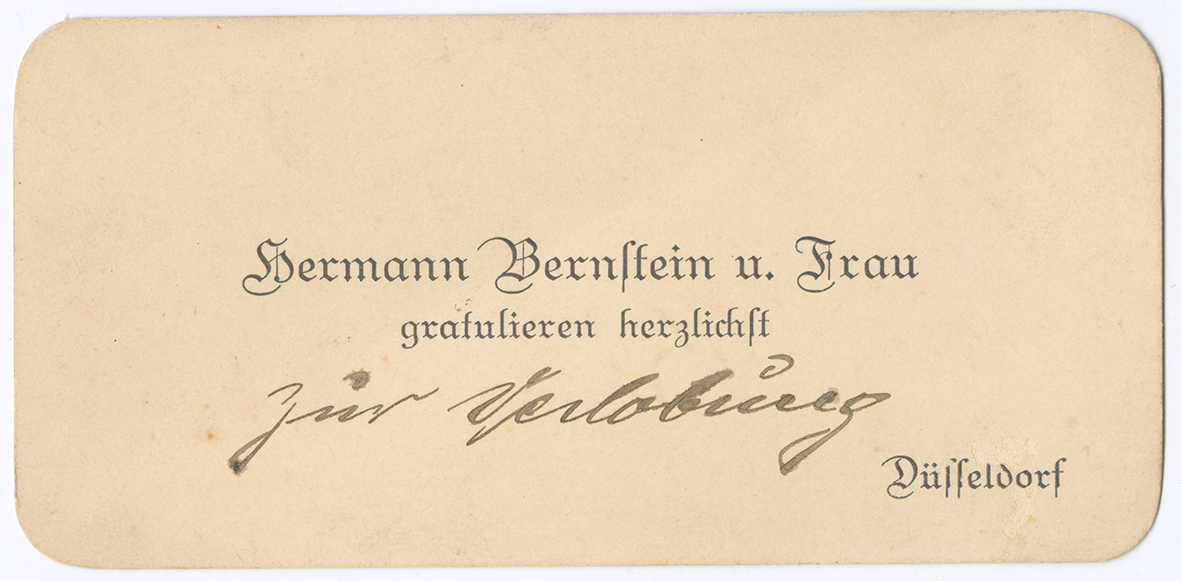 Hermann Bernstein u. Frau
gratulieren herzlichst
zur Verlobung
Düsseldorf